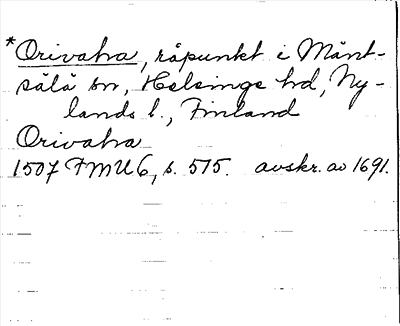 *Orivaha, råpunkt i Mänt-
sälä sn, Helsinge hd, Ny-
lands l., Finland
Orivaha
1507 FMU 6, s. 515. avskr. av 1691.